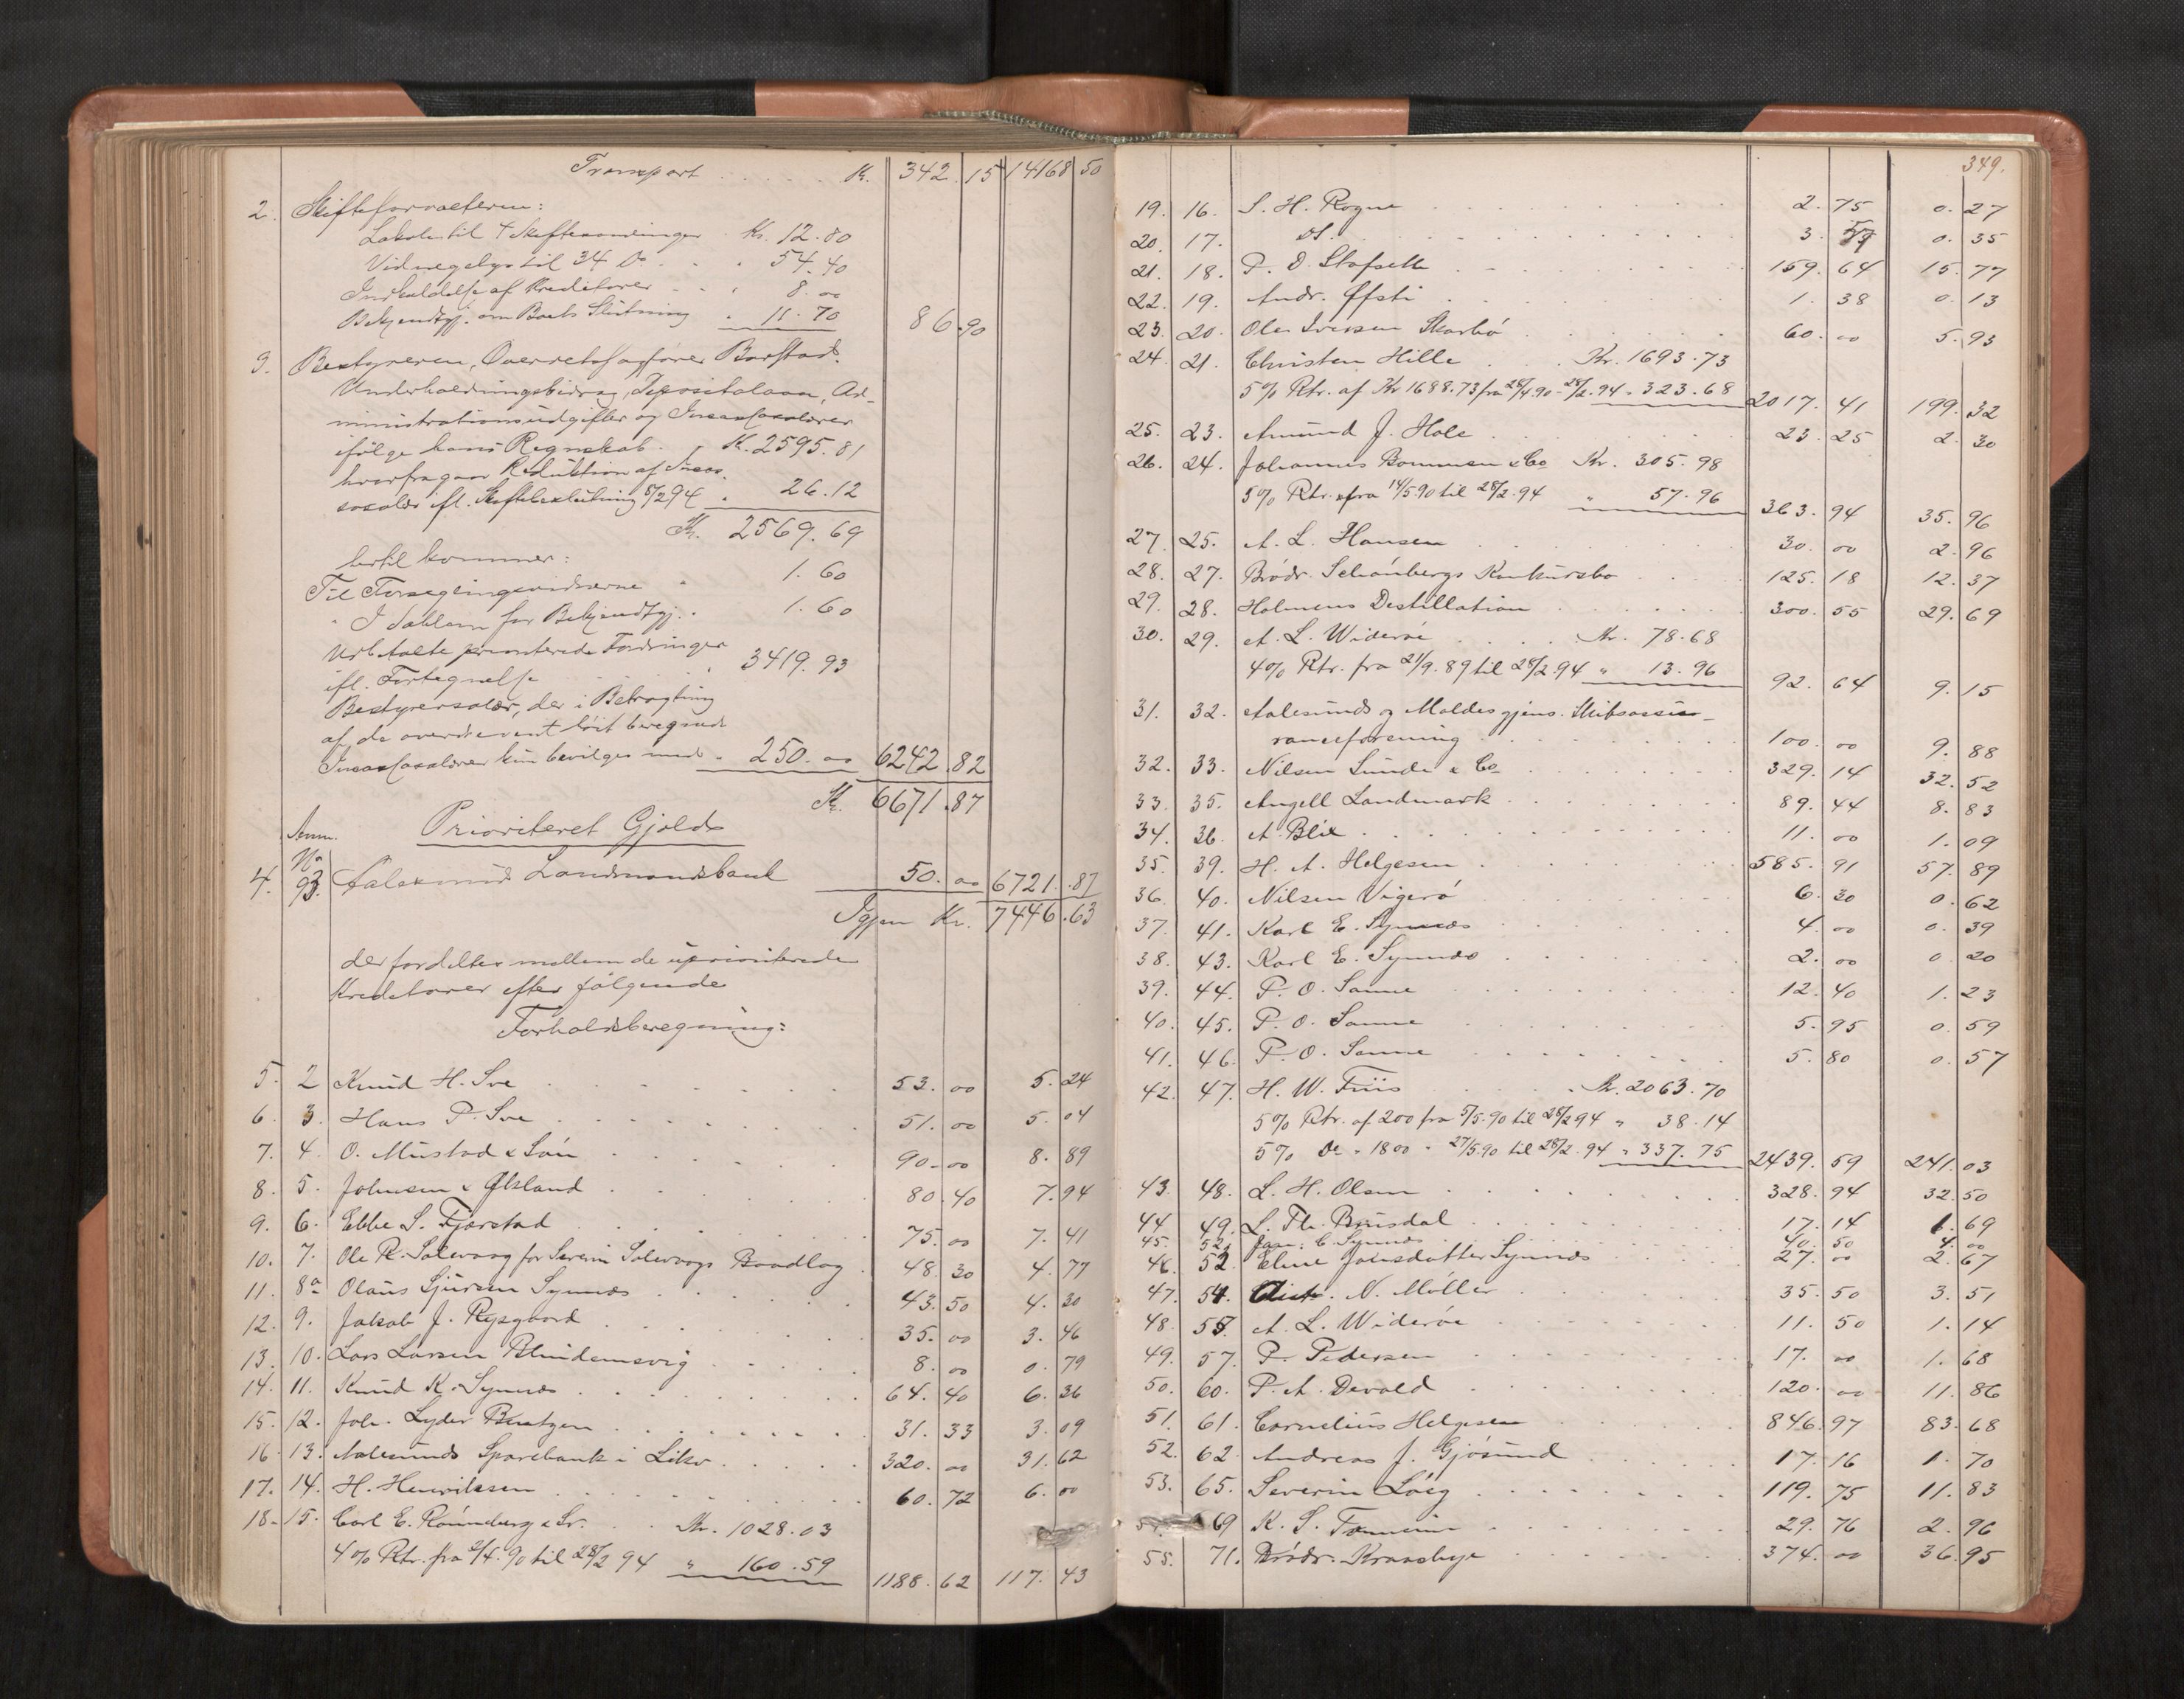 Transport . . . . . K. 342. 15 14168 50
2. Skifteforvalteren:
Lokale til 4 Skiftesamlinger Kr. 12.80
Vidnegebyr til 34 Do . . 54.40
Indkaldelse af Kreditorer - - 8.00
Bekjendtgj. om Boets Slutning " 11.70 86.90
3. Bestyreren, Overretssagfører Barstad.
Underholdningsbidrag, Depositalaan, Ad-
ministrationsudgifter og Incassosalærer
ifølge hans Regnskab. K. 2595.81
hvorfra gaar Reduktion af Incas-
sosalær ifl. Skiftebeslutning 5/2 94 " 26.12
K. 2569.69
hertil kommer:
Til Forseglingsvidnerne " 1.60
" I Dahlem for Bekjendtgj. " 1.60
Udbetalte prioriterede Fordringer
ifl. Fortegnelse . . 3419.93
Bestyrersalær, der i Betragtning
af de overdrevent høit beregnede
Incassosalærer kun bevilges med " 250.00 6242.82
K. 6671.87
Anm. No Prioriteret Gjæld
4. 93. Aalesund Landmandsbank 50.00 6721.87
Igjen Kr. 7446.63
der fordeltes mellem de uprioriterede
Kreditorer efter følgende
Forholdsberegning:
5. 2 Knud H. Sve . . . 53.00 5.24
6. 3. Hans P. Sve . . . 51.00 5.04
7. 4. O. Mustad & Søn . . . 90.00 8.89
8. 5. Johnsen & Øksland . . . 80.40 7.94
9. 6. Ebbe S. Fjørstad . . . 75.00 7.41
10. 7. Ole R. Solevaag for Severin Solevaags Baadlag . 48.30 4.77
11. 8a Olaus Sjursen Synnæs . . . 43.50 4.30
12. 9. Jakob J. Rysgaard . . . 35.00 3.46
13. 10. Lars Larsen Blindemsvig . . . 8.00 0.79
14. 11. Knud K. Synnæs . . . 64.40 6.36
15. 12. Joh. Lyder Brutzen . . . 31.33 3.09
16. 13. Aalesunds Sparebank i Likv. . . . 320.00 31.62
17. 14. H. Henriksen . . . 60.72 6.00
18. 15. Carl E. Rønneberg & Sr. . . Kr. 1028.03
4% Rtr. fra 2/4. 90 til 28/2 94 " 160.59 1188.62 117.43
349.
19. 16. S. H. Rogne . . . 2.75 0.27
20. 17. Ds. . . . 3. 0.35
21. 18. P. D. Stafseth . . . 159.64 15.77
22. 19. Andr. Øfsti . . . 1.38 0.13
23. 20. Ole Iversen Skarbø . . . 60.00 5.93
24. 21. Christen Hille . . Kr. 1693.73
5% Rtr. af Kr 1688.73 fra 28/4 90 - 28/2. 94 " 323.68 2017.41 199.32
25. 23. Amund J. Hole . . . 23.25 2.30
26. 24. Johannes Bommen & Co Kr. 305.98
5% Rtr. fra 14/5 90 til 28/2. 94 " 57.96 363.94 35.96
27. 25. A. L. Hansen . . . 30.00 2.96
28. 27. Brødr. Schønbergs Konkursbo . . . 125.18 12.37
29. 28. Holmens Destillation . . . 300.55 29.69
30. 29. A. L. Widerøe . . . Kr. 78.68
4% Rtr. fra 21/9. 89 til 28/2. 94 " 13.96 92.64 9.15
31. 32. Aalesunds og Moldes gjens. Skibsassu-
ranceforening . . . 100.00 9.88
32. 33. Nilsen Sunde & Co . . . 329.14 32.52
33. 35. Angell Landmark . . . 89.44 8.83
34. 36. A. Blix . . . 11.00 1.09
35. 39. H. A. Helgesen . . . 585.91 57.89
36. 40. Nilsen Vigerø . . . 6.30 0.62
37. 41. Karl E. Synnæs . . . 4.00 0.39
38. 43. Karl E. Synnæs . . . 2.00 0.20
39. 44. P. O. Sanne . . . 12.40 1.23
40. 45. P. O. Sanne . . . 5.95 0.59
41. 46. P. O. Sanne . . . 5.80 0.57
42. 47. H. W. Friis . . . Kr. 2063.70
5% Rtr. af 200 fra 5/5. 90 til 28/2 94 " 38.14
5% Do " 1800 " 27/5. 90 til 28/2. 94 " 337.75 2439.59 241.03
43. 48. L. H. Olsen . . . 328.94 32.50
44. 49. L. Th. Brusdal . . . 17.14 1.69
45. 52. E. Synnæs . . . 40.50 4.00
46. 52. Eline Jonsdatter Synnæs . . . 27.00 2.67
47. 54. N. Møller . . . 35.50 3.51
48. 55. A. L. Widerøe . . . 11.50 1.14
49. 57. P. Pedersen . . . 17.00 1.68
50. 60. P. A. Devold . . . 120.00 11.86
51. 61. Cornelius Helgesen . . . 846.97 83.68
52. 62. Andreas J. Gjøsund . . . 17.16 1.70
53. 65. Severin Løeg . . . 119.75 11.83
69 K. S. . . . 29.76 2.96
55. 71. Brødr. Kraasbye . . . 374.00 36.95